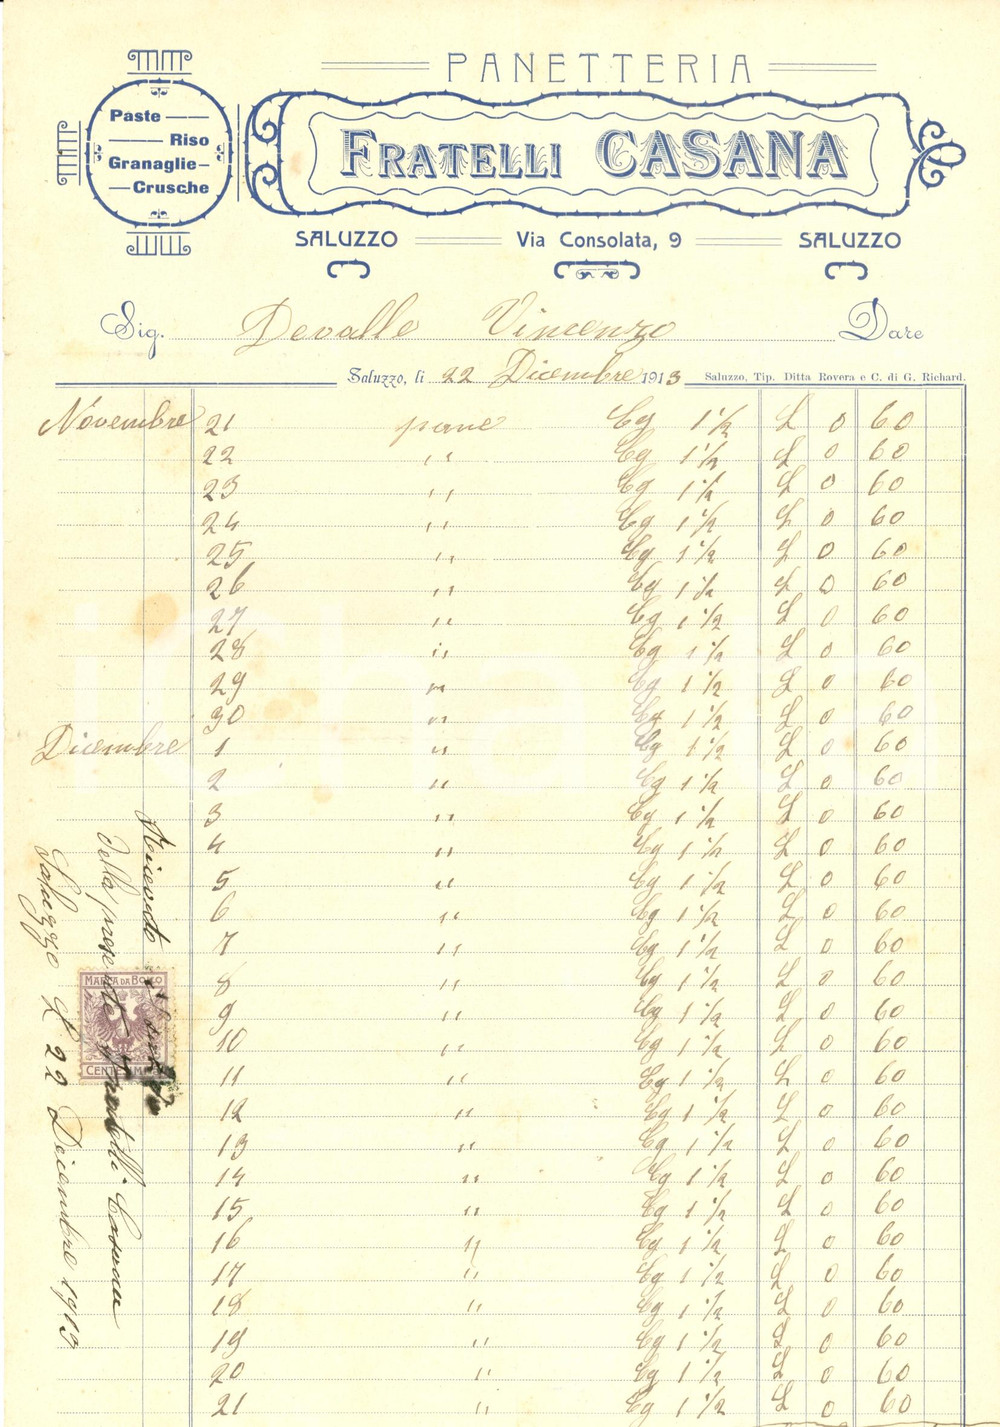 PANETTERIA
FRATELLI CASANA
Paste
Riso
Granaglie
Crusche
SALUZZO Via Consolata, 9 SALUZZO
Sig. Devalle Vincenzo Dare
Saluzzo, li 22 Dicembre 1913 Saluzzo, Tip. Ditta Rovera e C. di G. Richard.
Novembre 21 pane Cg 1 1/2 L 0 60
22 " Cg 1 1/2 L 0 60
23 " Cg 1 1/2 L 0 60
24 " Cg 1 1/2 L 0 60
25 " Cg 1 1/2 L 0 60
26 " Cg 1 1/2 L 0 60
27 " Cg 1 1/2 L 0 60
28 " Cg 1 1/2 L 0 60
29 " Cg 1 1/2 L 0 60
30 " Cg 1 1/2 L 0 60
Dicembre 1 " Cg 1 1/2 L 0 60
2 " Cg 1 1/2 L 0 60
3 " Cg 1 1/2 L 0 60
4 " Cg 1 1/2 L 0 60
5 " Cg 1 1/2 L 0 60
6 " Cg 1 1/2 L 0 60
7 " Cg 1 1/2 L 0 60
8 " Cg 1 1/2 L 0 60
9 " Cg 1 1/2 L 0 60
10 " Cg 1 1/2 L 0 60
11 " Cg 1 1/2 L 0 60
12 " Cg 1 1/2 L 0 60
13 " Cg 1 1/2 L 0 60
14 " Cg 1 1/2 L 0 60
15 " Cg 1 1/2 L 0 60
16 " Cg 1 1/2 L 0 60
17 " Cg 1 1/2 L 0 60
18 " Cg 1 1/2 L 0 60
19 " Cg 1 1/2 L 0 60
20 " Cg 1 1/2 L 0 60
21 " Cg 1 1/2 L 0 60
Ricevuto
della presente Fratelli Casana
Saluzzo L 22 Dicembre 1913
MARCA DA BOLLO